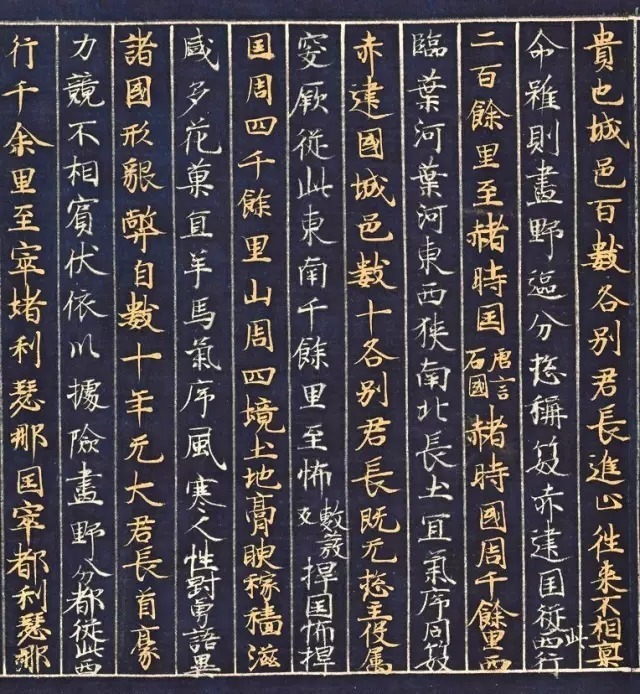 貴也城邑百數各別君長進止往来不相稟
命雖則畫野區分惣稱笯赤建国從此西行
二百餘里至赭時国唐言石國赭時國周千餘里西
臨葉河葉河東西狹南北長土宜氣序同笯
赤建國城邑數十各別君長既无惣主伇属
突厥從此東南千餘里至怖敷發反捍国怖捍
国周四千餘里山周四境土地膏腴稼穡滋
咸多花菓宜羊馬氣序風寒人性對勇語異
諸國形貌弊自數十年无大君長首豪
力競不相賓伏依以據險畫野分都從此西
行千余里至窣堵利瑟那国窣都利瑟那